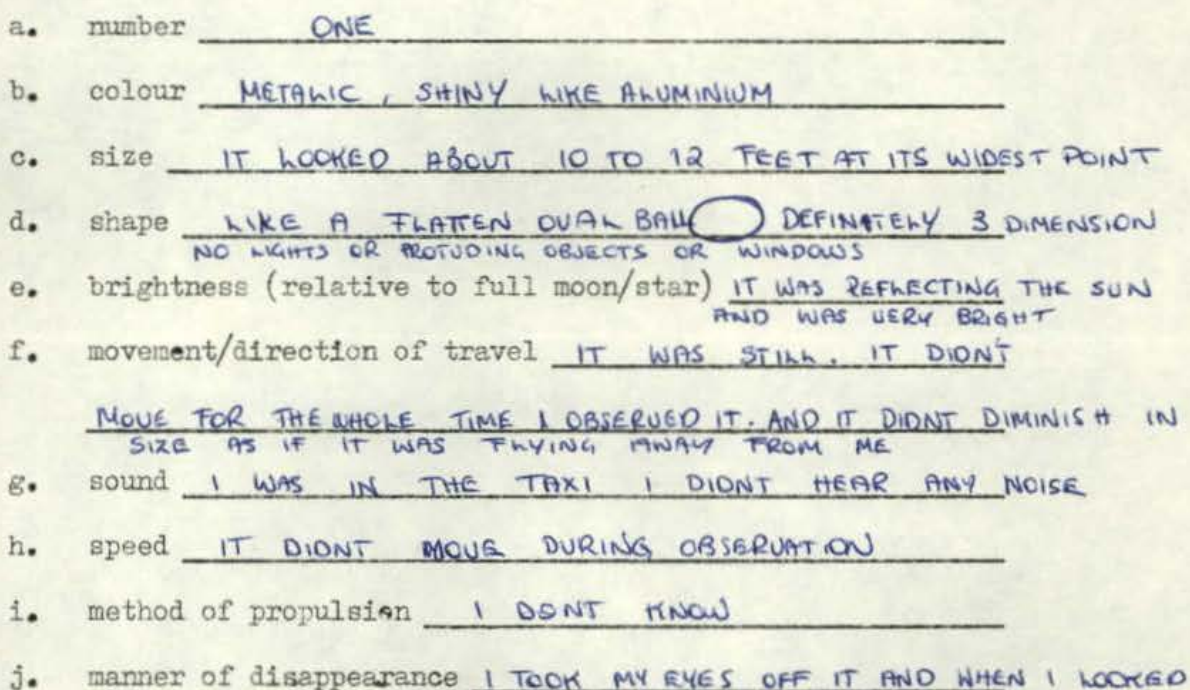 a. number ONE
b. colour METALIC, SHINY LIKE ALUMINIUM
c. size IT LOOKED ABOUT 10 TO 12 FEET AT ITS WIDEST POINT
d. shape LIKE A FLATTEN OVAL BALL DEFINATELY 3 DIMENSION
NO LIGHTS OR PROTUDING OBJECTS OR WINDOWS
e. brightness (relative to full moon/star) IT WAS REFLECTING THE SUN
AND WAS VERY BRIGHT
f. movement/direction of travel IT WAS STILL. IT DIDN'T
MOVE FOR THE WHOLE TIME I OBSERVED IT. AND IT DIDNT DIMINISH IN
SIZE AS IF IT WAS FLYING AWAY FROM ME
g. sound I WAS IN THE TAXI I DIDNT HEAR ANY NOISE
h. speed IT DIDNT MOVE DURING OBSERVATION
i. method of propulsion I DONT KNOW
j. manner of disappearance I TOOK MY EYES OFF IT AND WHEN I LOOKED